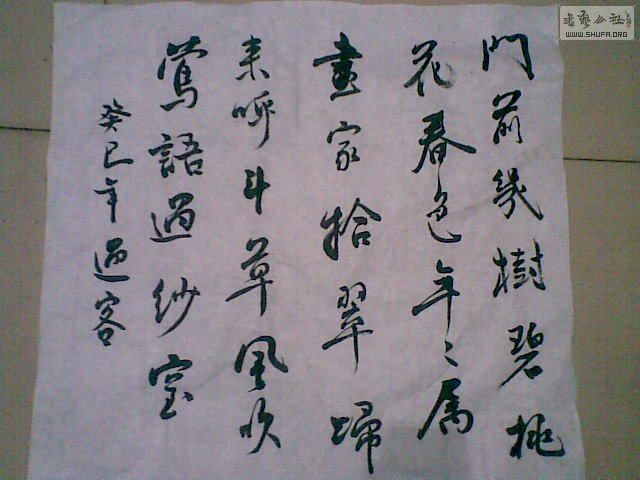 門前幾樹碧桃
花春色年〻属
畫家拾翠歸
来呼斗草風吹
鶯語過紗窓
癸巳年過客
書藝公社
WWW.SHUFA.ORG